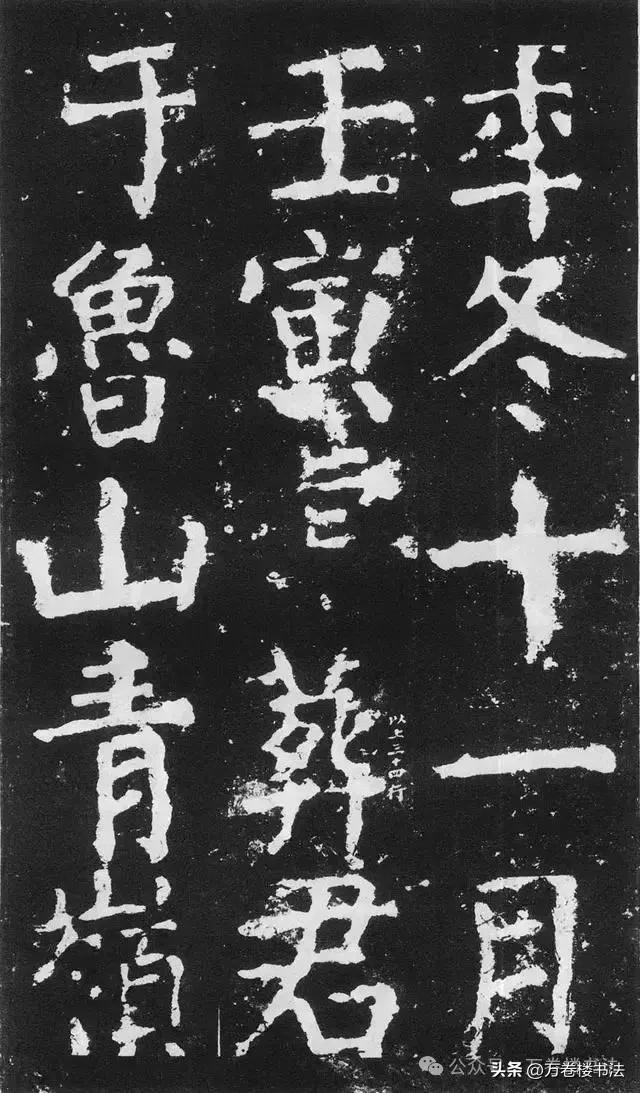 年冬十一月
壬寅葬君
以上三十四行
于魯山青嶺
公众号·万卷楼书法
头条 @万卷楼书法